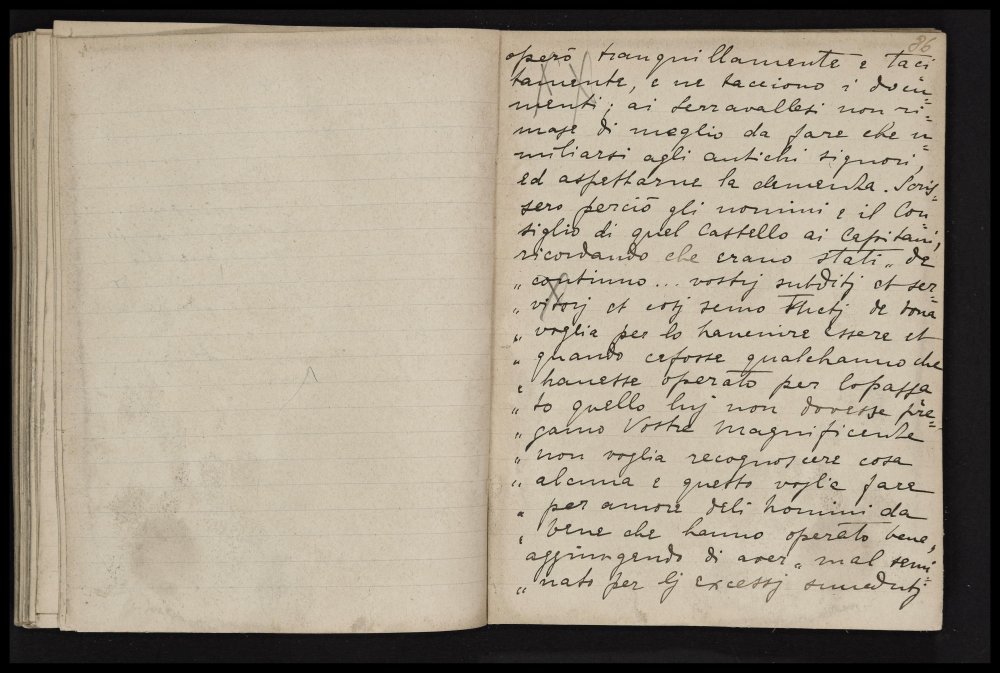 86
operò tranquillamente e taci
tamente, e ne tacciono i docu=
menti; ai Serravallesi non ri=
mase di meglio da fare che u=
miliarsi agli antichi signori,
ed aspettarne la clemenza. Scris=
sero perciò gli uomini e il Con=
siglio di quel Castello ai Capitani,
ricordando che erano stati „ de
„ continuo... vostrij subditij et ser=
„ vitorij et cosj semo de bona
„ voglia per lo havenire essere et
„ quando cefosse qualchauno che
„ havesse operato per lopassa
„ to quello luj non dovesse pre=
„ gamo Vostre Magnificenze
„ non voglia recognoscere cosa
„ alcuna e questo voglia fare
„ per amore deli homini da
„ bene che hanno operato bene,
aggiungendo di aver „ mal semi=
„ nato per lj excessj